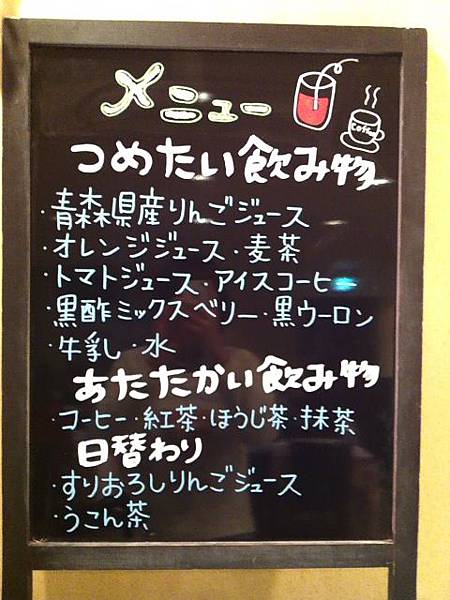 メニュー
Coffee
つめたい飲み物
・青森県産りんごジュース
・オレンジジュース・麦茶
・トマトジュース・アイスコーヒー
・黒酢ミックスベリー・黒ウーロン
・牛乳し・水
あたたかい飲み物
・コーヒー・紅茶・ほうじ茶・抹茶
日替わり
・すりおろしりんごジュース
・うこん茶